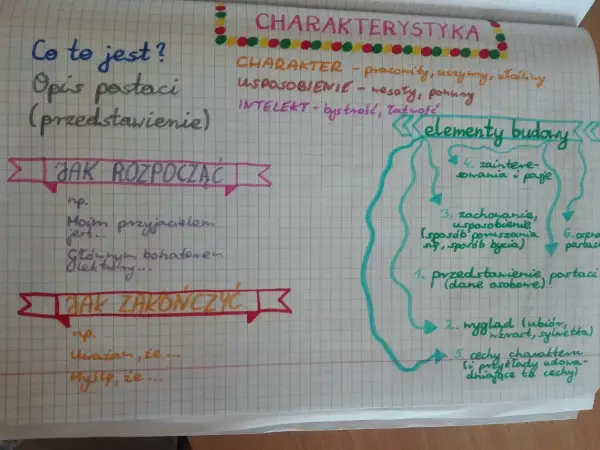 CHARAKTERYSTYKA
Co to jest?
Opis postaci
(przedstawienie)
CHARAKTER - pracowity, uczynny, złośliwy
USPOSOBIENIE - wesoły, ponury
INTELEKT - bystrość, łatwość
JAK ROZPOCZĄĆ
np.
Moim przyjacielem
jest...
Głównym bohaterem
lektury...
JAK ZAKOŃCZYĆ
np.
Uważam, że...
Myślę, że...
elementy budowy
4. zaintere-
sowania i pasje
3. zachowanie,
usposobienie
(sposób poruszania
się, sposób bycia)
6. ocena
postaci
1. przedstawienie postaci
(dane osobowe)
2. wygląd (ubiór,
wzrost, sylwetka)
5. cechy charakteru
(i przykłady udowa-
dniające te cechy)